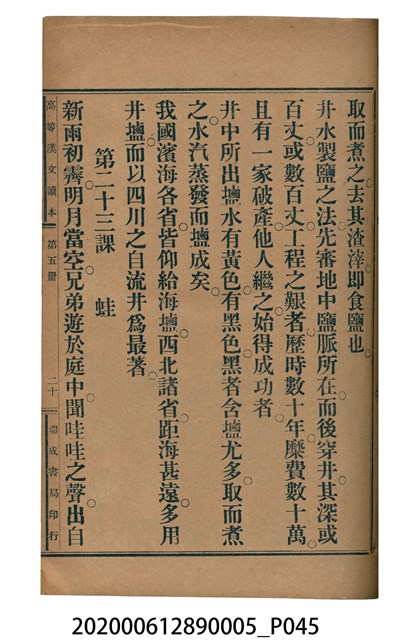 取而煮之。去其渣滓。即食鹽也。
井水製鹽之法。先審地中鹽脈所在。而後穿井。其深或
百丈。或數百丈。工程之艱者。歷時數十年。糜費數十萬。
且有一家破產。他人繼之。始得成功者。
井中所出鹽水。有黃色。有黑色。黑者含鹽尤多。取而煮
之。水汽蒸發而鹽成矣。
我國濱海各省。皆仰給海鹽。西北諸省。距海甚遠。多用
井鹽。而以四川之自流井爲最著。
第二十三課　蛙
新雨初霽。明月當空。兄弟遊於庭中。聞哇哇之聲。出自
高等漢文讀本　第五册　二十　蘭成書局印行
202000612890005_P045